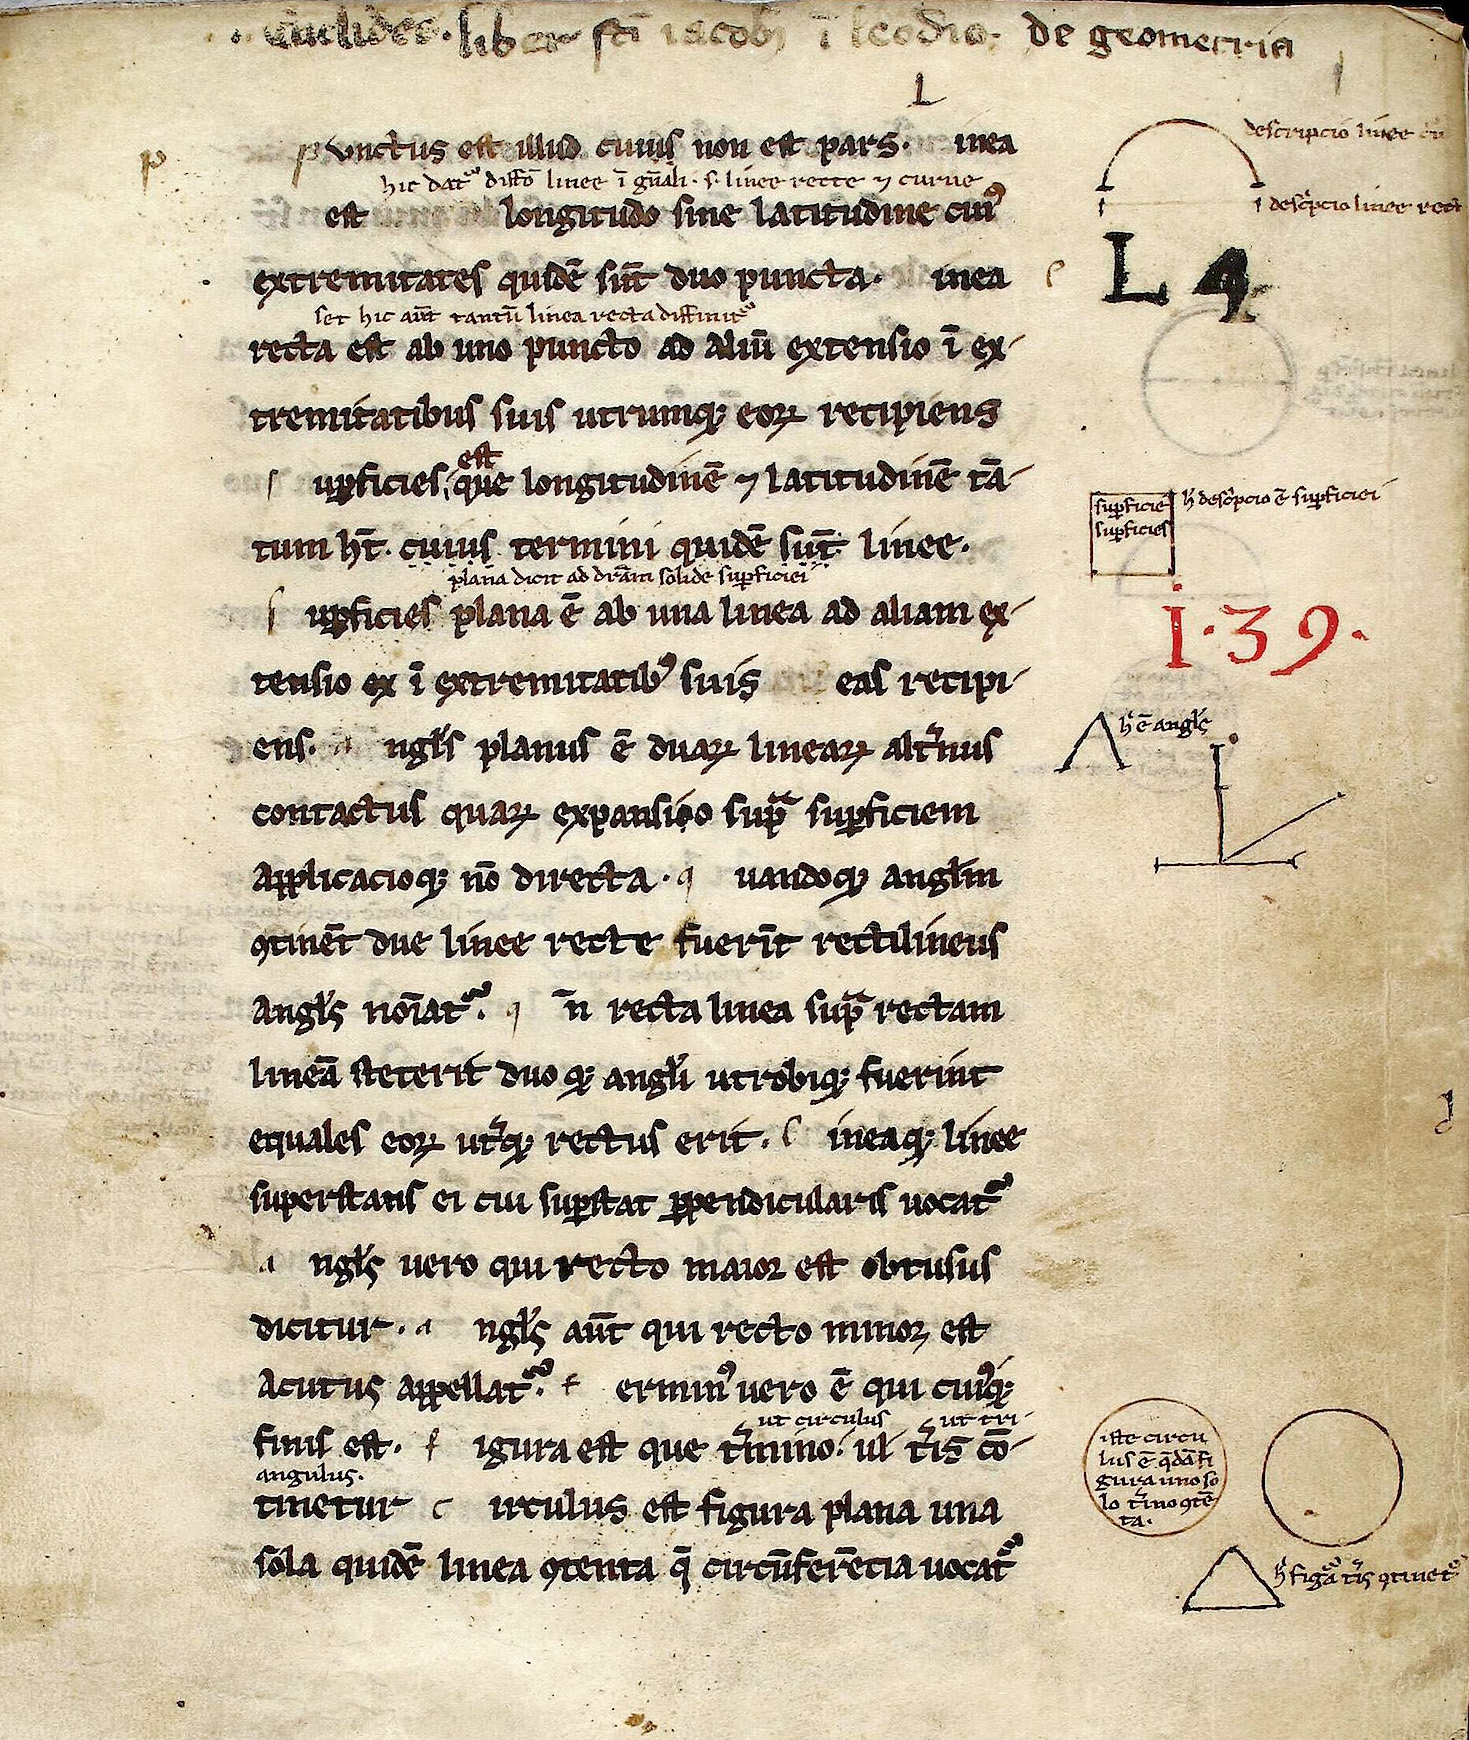 Euclides. liber sci iacobi ī leodio. de geometria
L
punctus est illud cuius non est pars. inea
hic dat᷑ diffō linee ī gn̄ali. s. linee recte ⁊ curue
est longitudo sine latitudine cuiꝰ
extremitates quidē sūt duo puncta. inea
set hic aūt tantū linea recta diffinit᷑
recta est ab uno puncto ad aliū extensio ī ex-
tremitatibus suis utrumqꝫ eoꝝ recipiens
s uꝑficies est que longitudinē ⁊ latitudinē tā-
tum hꝫt. cuius termini quidē sūt linee.
plana dicit ad dr̄am solide suꝑficiei
s uꝑficies plana ē ab una linea ad aliam ex-
tensio ex ī extremitatibꝰ suis eas recipi-
ens. a ngl̓s planus ē duaꝝ lineaꝝ alt̓nus
contactus quaꝝ expansio sup̄ᵃ suꝑficiem
applicacioqꝫ nō directa. q uandoqꝫ angl̓m
ꝯtinēt due linee recte fuerīt rectilineus
angl̓s noīat᷑. q n̄ recta linea sup̄ᵃ rectam
lineā steterit duo qꝫ angl̓i utrobiqꝫ fuerint
equales eoꝝ ut̓qꝫ rectus erit. l ineaqꝫ linee
superstans ei cui suꝑstat ꝑpendicularis uocat᷑
a ngl̓s uero qui recto maior est obtusus
dicitur. a ngl̓s aūt qui recto minor est
acutus appellat᷑. t erminꝰ uero ē qui cuiꝰqꝫ
ut circulus ut tri-
finis est. f igura est que t̓mino. ul t̓is cō-
angulus.
tinetur c irculus est figura plana una
sola quidē linea ꝯtenta q̄ circūferētia uocat᷑
descripcio linee
descͥpcio linee rect
L 4
suꝑficie
suꝑficies
h̓ descͥpcio ē suꝑficiei
1.39.
h̓ ē angl̓s
iste circu
lus ē q̄dā fi
gura uno so
lo t̓mino ꝯtē
ta.
h̓ figᵃ t̓is ꝯtinet᷑